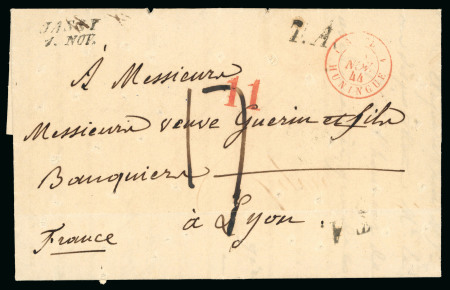 JASSY
4. NOV.
T.A
4
NOV.
44
HUNINGUE
11
17
À Messieurs
Messieurs veuve Guerin et fils
Banquiers
à Lyon
France